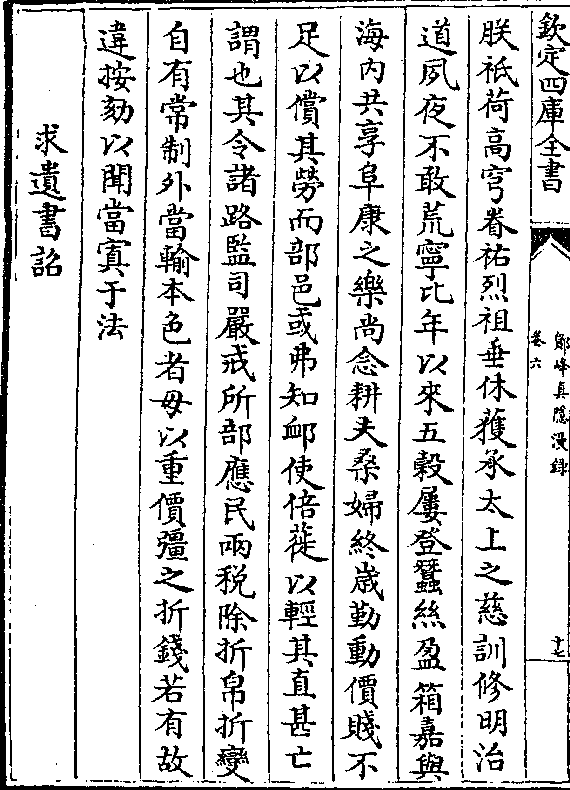 欽定四庫全書
鄮峰真隱漫録
卷六
十七
朕祇荷高穹眷祐烈祖垂休獲承太上之慈訓修明治
道夙夜不敢荒寧比年以來五穀屢登蠶絲盈箱嘉與
海内共享阜康之樂尚念耕夫桑婦終歳勤動價賤不
足以償其勞而部邑或弗知䘏使倍蓰以輕其直甚亡
謂也其令諸路監司嚴戒所部應民兩税除折帛折變
自有常制外當輸本色者毋以重價彊之折錢若有故
違按劾以聞當寘于法
求遺書詔